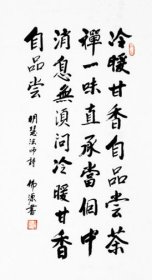 冷暖甘香自品尝茶
禪一味直承當個中
消息無須問冷暖甘香
自品尝
明慧法師詩 佛源書